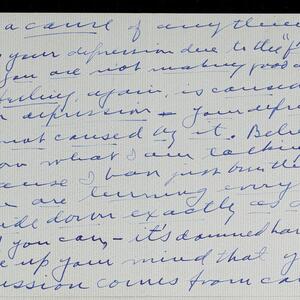 a cause of anything
your depression due to the "f
you are not making good a
feeling, again, is caused
depression — your depre
not caused by it. Belie
ow what I am talkin
cause I have just been th
are turning every
ide down exactly as a
d you can — it's damned har
e up your mind that y
ession comes from ca